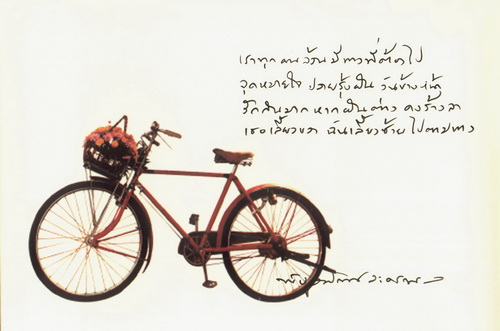 เราทุกคนล้วนมีทางที่ต้องไป
จุดหมายใจ ปลายรุ้งฝัน วันข้างหน้า
รักกันมาก หากฝันต่าง คงร้างลา
เธอเลี้ยวขวา ฉันเลี้ยวซ้าย ไปตามทาง